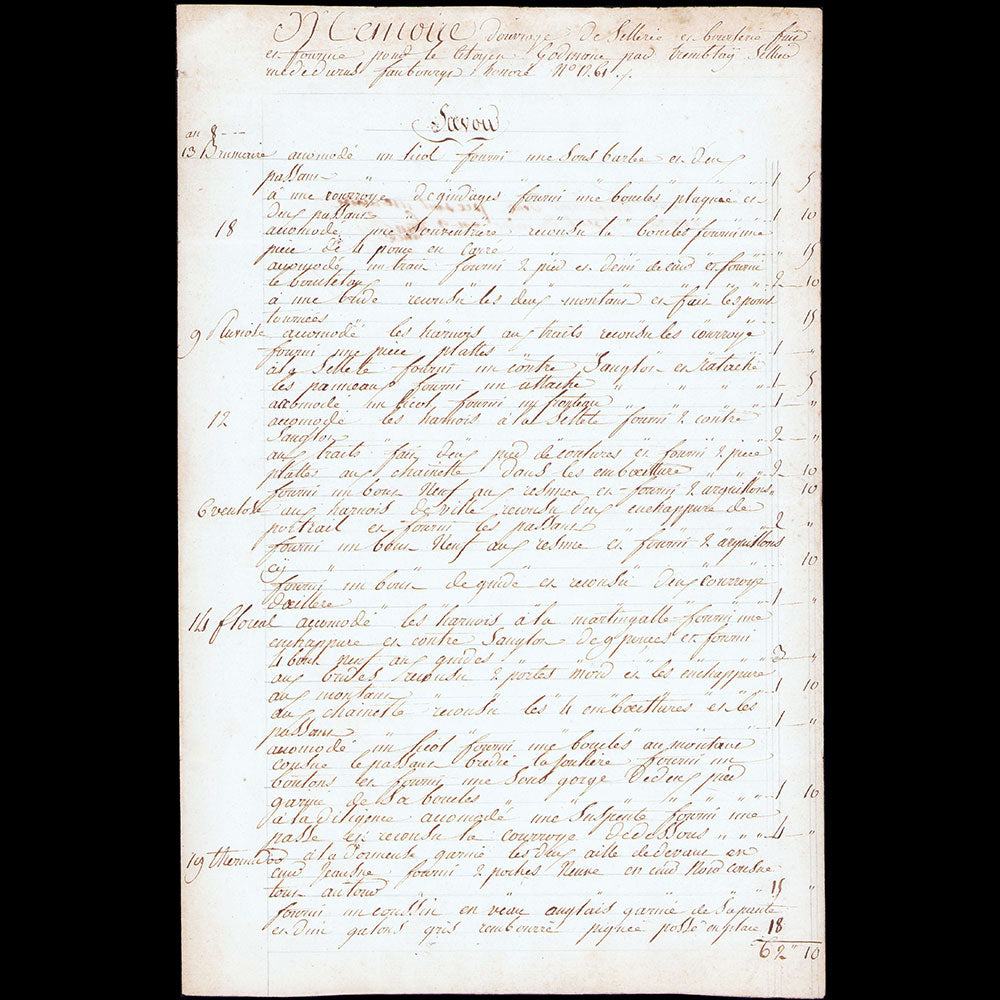 Memoire d'ouvrage de Sellerie et bourlerie fait
et fournie pour le Citoyen Godmone par tremblay Sellier
rue du faubourg honoré No 1261
Savoir
an 8
13 Brumaire accomodé un licol fourni une Sous barbe et deux
passant " " " " " 1 5
à une courroye de guidages fourni une boucles plaquée et
deux passant 1 10
18 acomodé une Souventriere recousu la boucles fourni une
piece de 4 pouce en carré " 15
acomodé un trait fourni 2 pied et demi de cuir et fourni
le boucleteau " " " " 2 10
à une bride recousu les deux montant et fait les points
tournées " 15
9 Pluviose accomodé les harnois aux traits recousu les courroye
fourni une piece plattes " 1 "
à la Sellete fourni un contre Sanglon et ratachè
les panneaux fourni un attache " " " 1 5
accomodé un licol fourni un fronteau " " " 1 "
12 acomodé les harnois à la Sellete fourni 2 contre
Sanglon 2 "
aux traits fait deux pied de coutures et fourni 2 piece
plattes aux chainette dans les emboeitture " " " 2 10
fourni un bout Neuf aux resnes et fourni 2 arguillons " 10
6 ventose aux harnois de ville recousu deux enchappure de
poitrail et fourni les passant " 2 "
fourni un bout Neuf aux resme et fourni 2 arguillons
cy " 10
fourni un bout de guide et recousu deux courroye
d'oeillere 1 "
14 floreal accomodé les harnois à la martingalle fourni une
enchappure et contre Sanglon de 9 pouces et fourni
4 bout neuf aux guides " " " " 3 "
aux brides recousu 2 portes mord et les enchappure
aux montant " 1 10
aux chainette recousu les 4 emboeittures et les
passant 1 "
acomodé un licol fourni une boucles au montant
cousue le passant bredie la fouhere fourni un
boutons et fourni une Sous gorge de deux pied
garnie de Sa boucles " " " " " 1 10
à la diligence accomodé une Suspente fourni une
passe et recousu la courroye de dessous " " " 4 "
19 thermidor à la Dormeuse garnie les deux aille de devant en
cuir fourni 2 poches Neuve en cuir Noir cousue
tout autour 15 "
fourni un coussin en veau anglais garnie de Sa pente
et d'un galons gris rembourré piquée possé en place 18
62 " 10